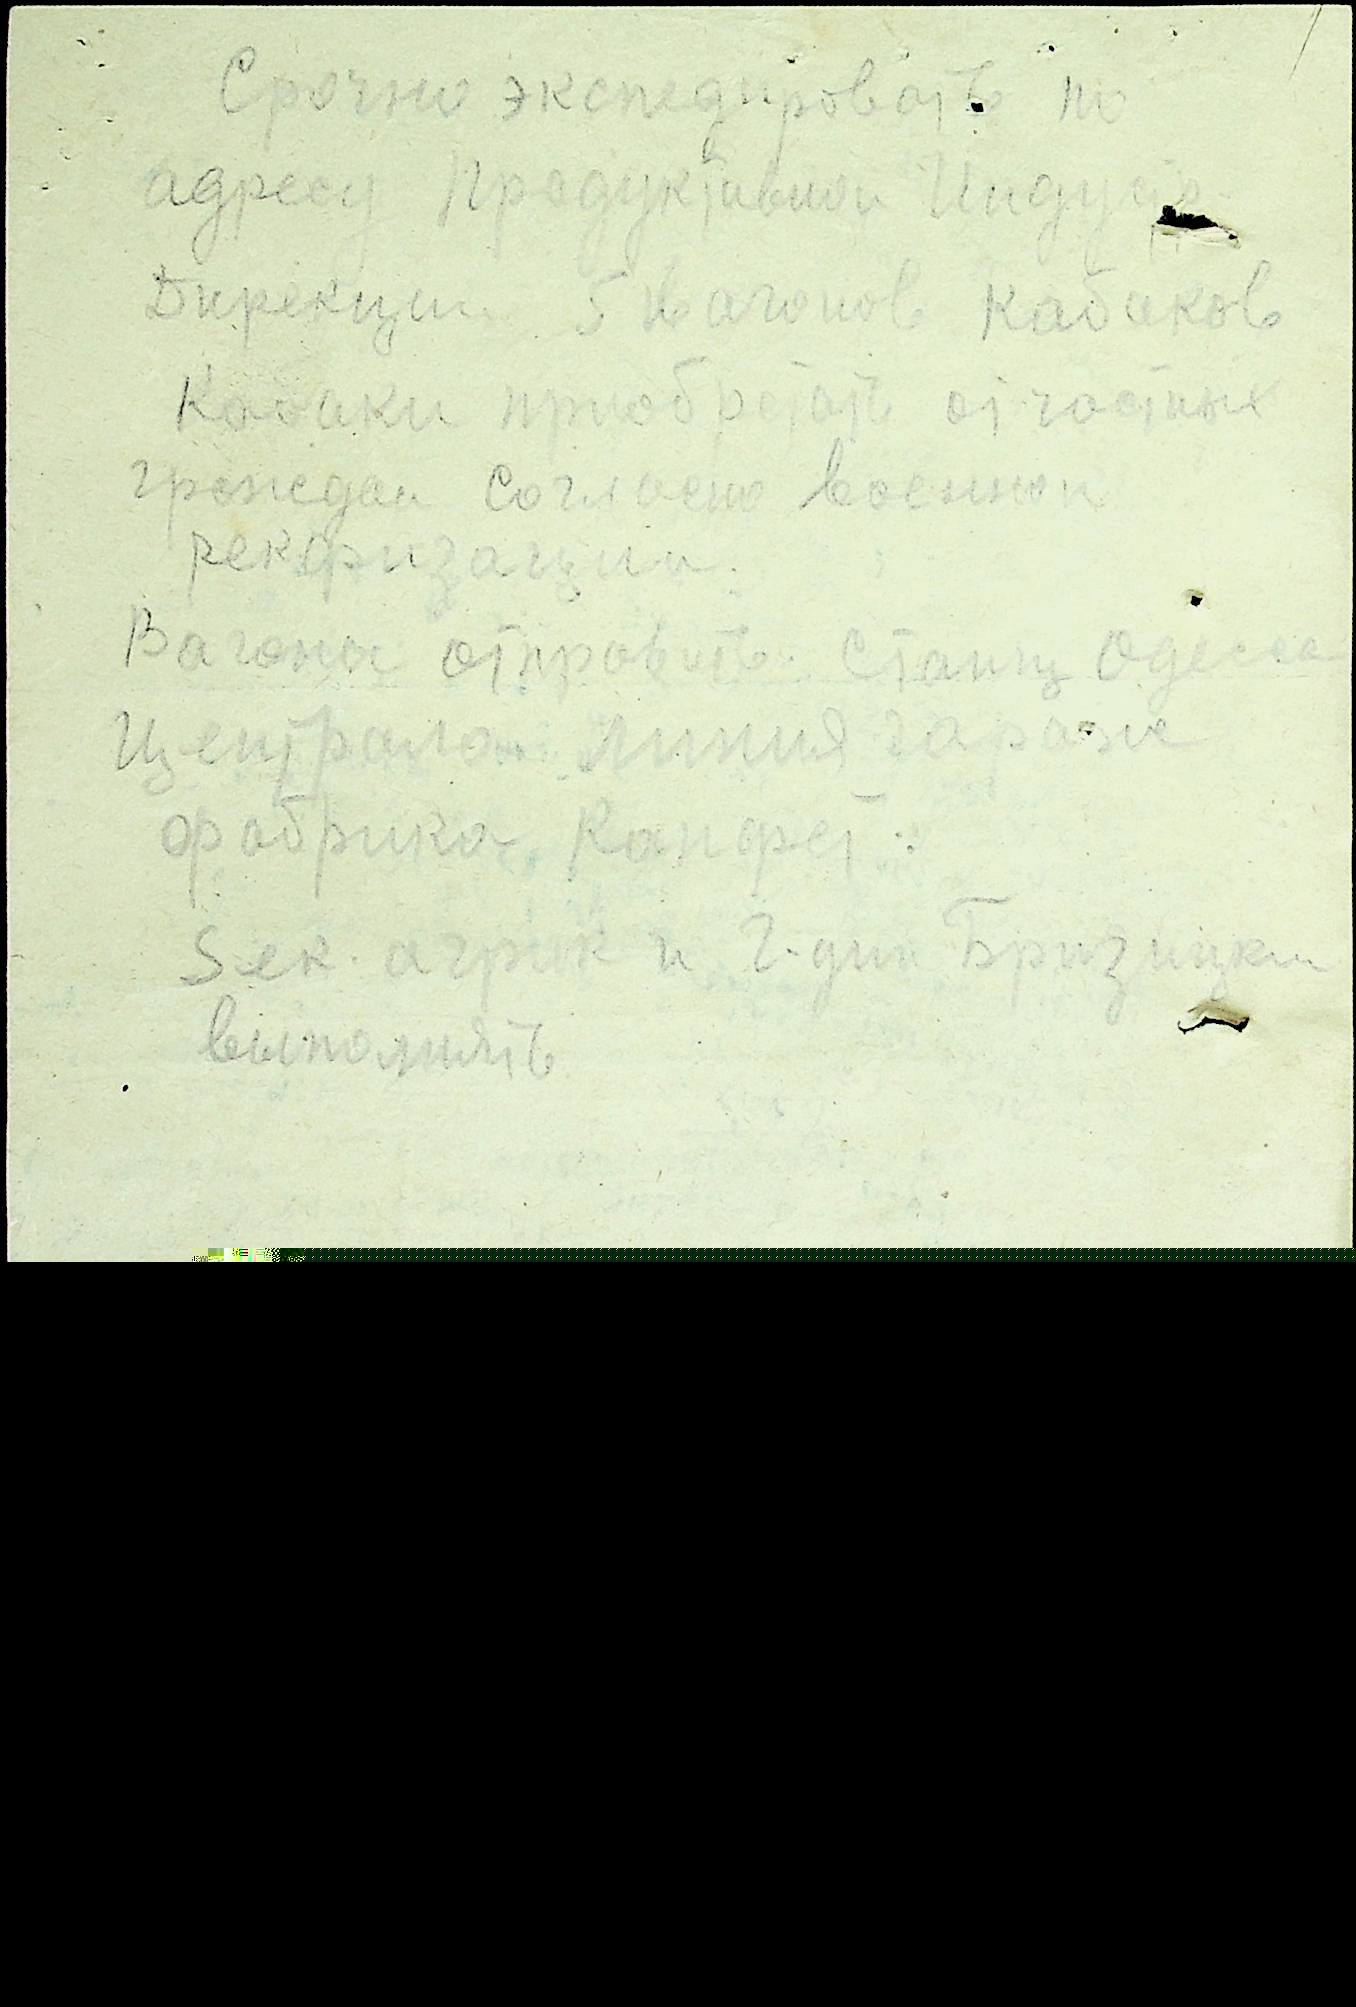 Срочно экспедировать по
адресу Продуктивной Индустр.
Дирекции 5 вагонов кабаков
Кабаки приобретать от частных
граждан согласно военной
рекфизации.
Вагоны отправить Станц Одесса
Централа линия гаража
фабрика Канфет.
Sек. агрик и Г-дин Бризицки
выполнять